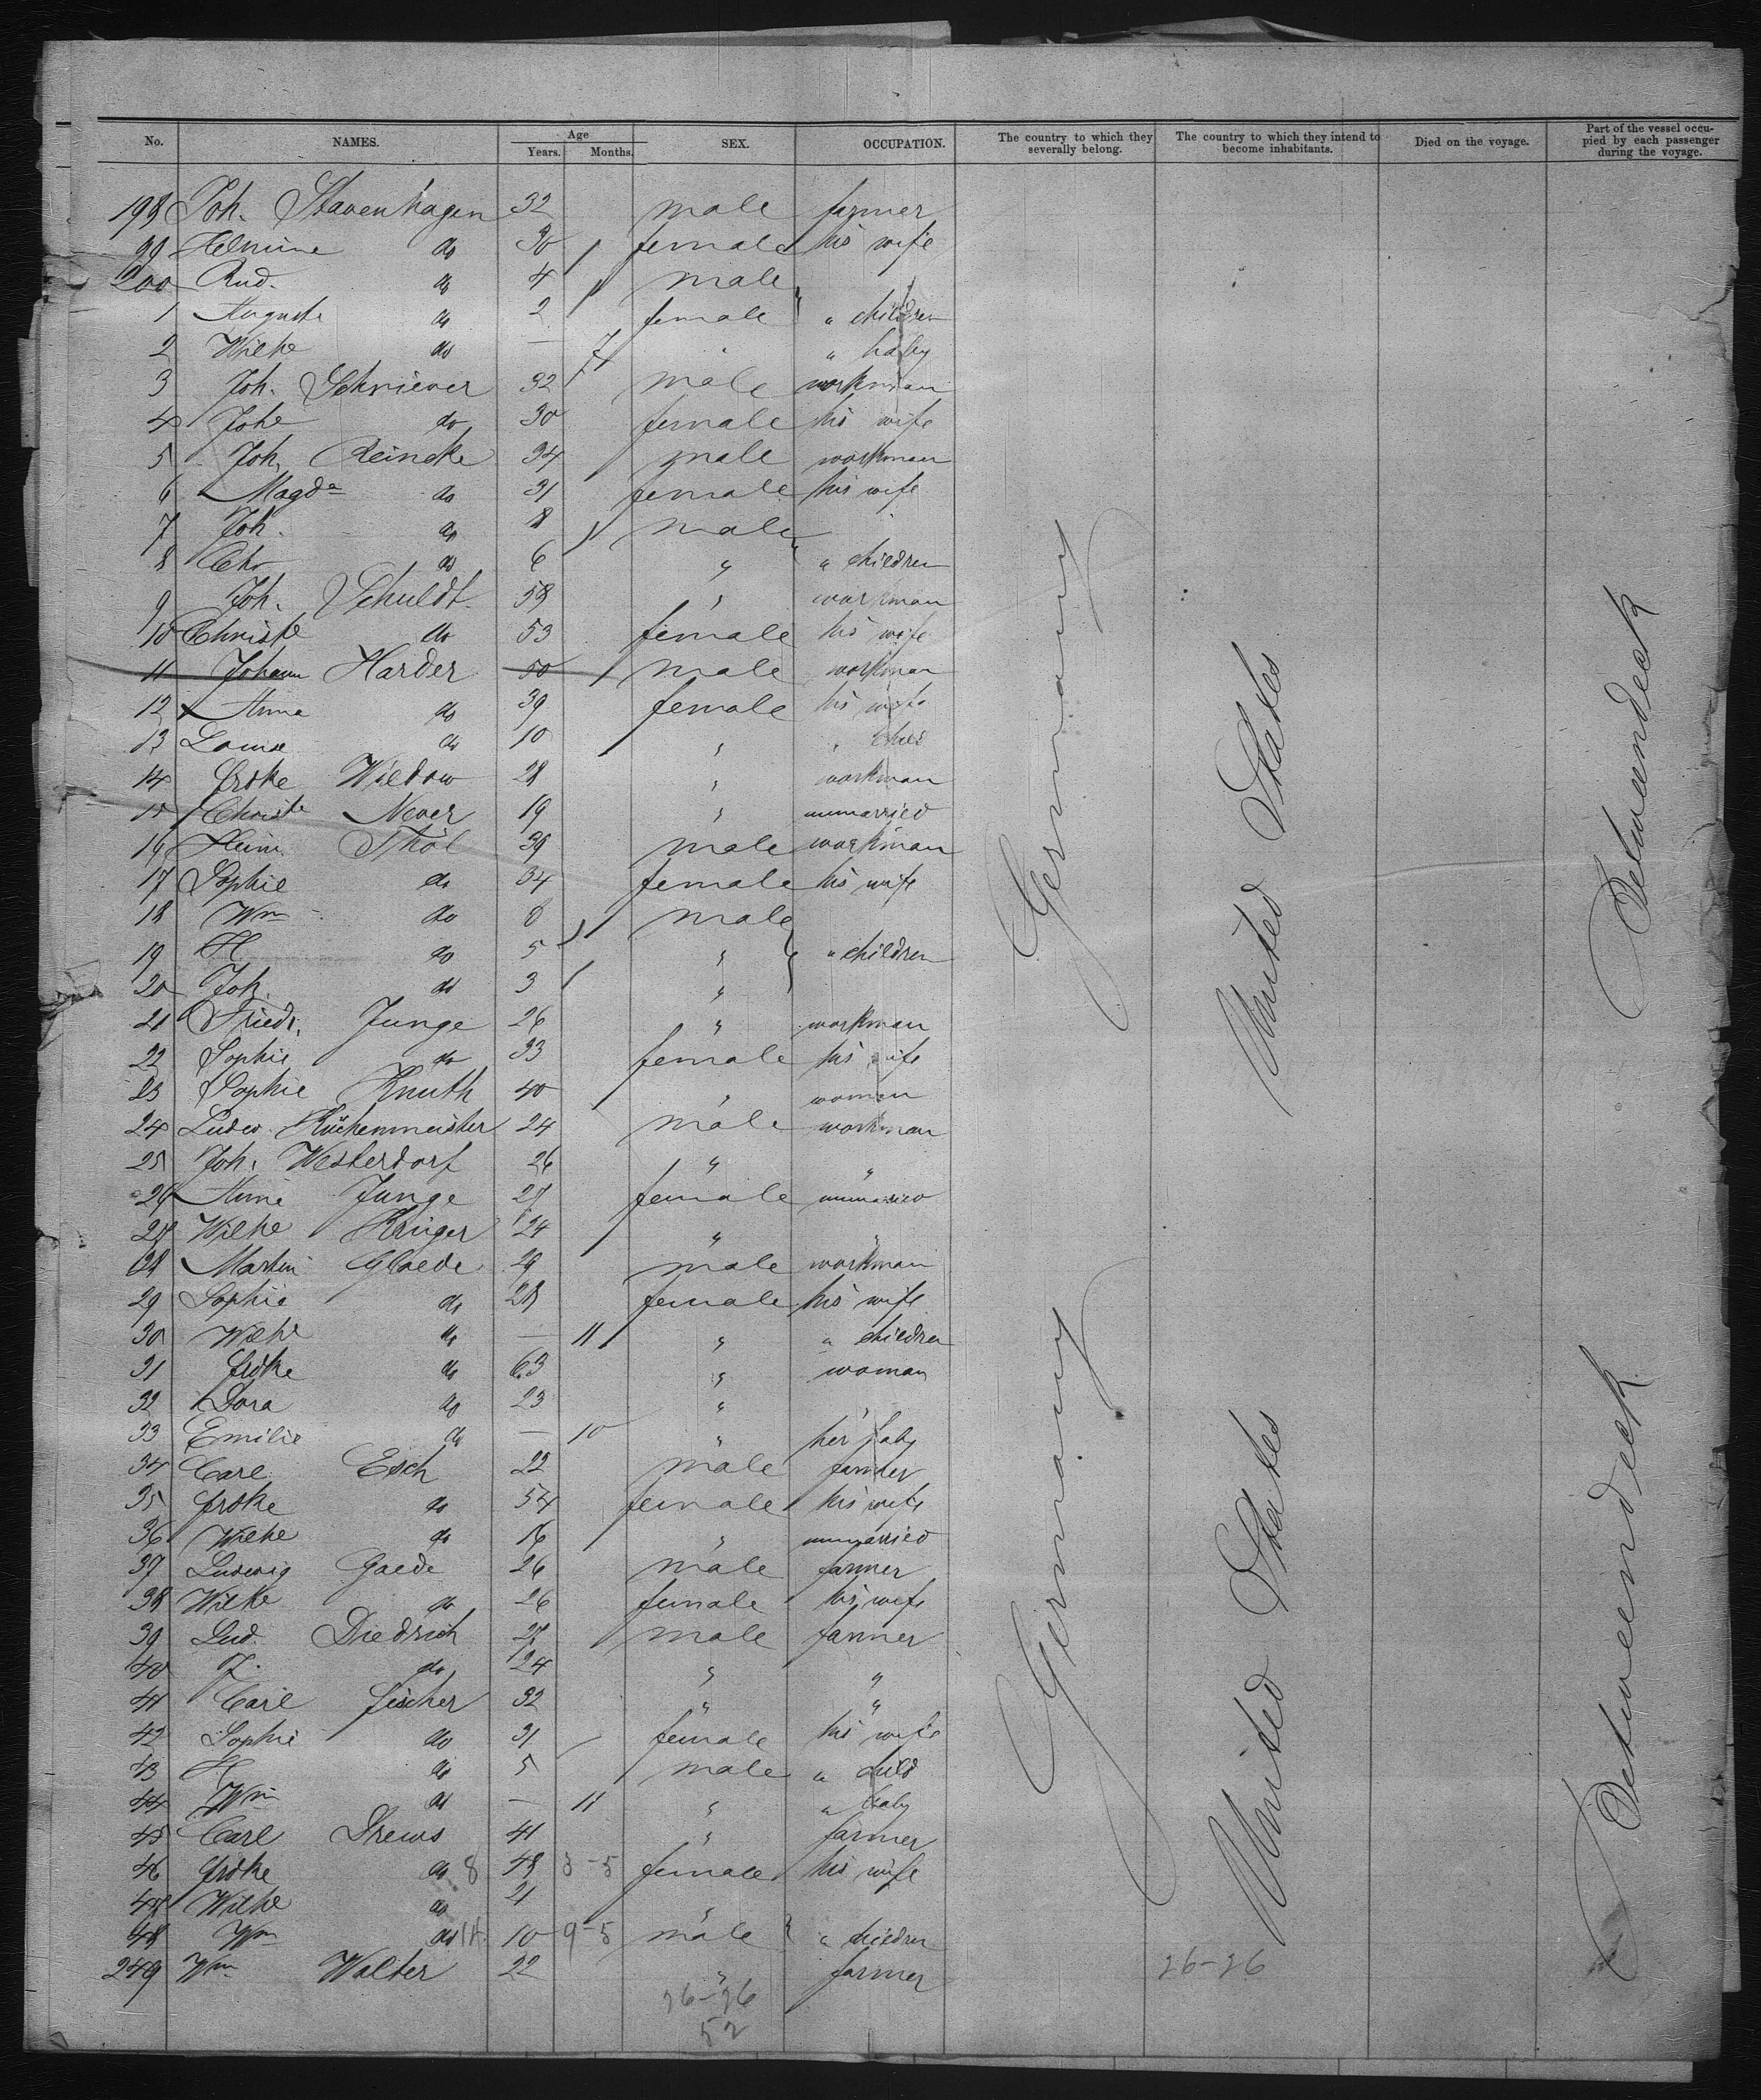 No. NAMES. Age Years. Months. SEX. OCCUPATION. The country to which they severally belong. The country to which they intend to become inhabitants. Died on the voyage. Part of the vessel occupied by each passenger during the voyage.
198 Joh. Stavenhagen 32 male farmer
99 Helmine do 30 female his wife
200 Rud. do 4 male
1 Auguste do 2 female " children
2 Wilhe do — 7 " " baby
3 Joh. Schriever 32 male workman
4 Johe do 30 female his wife
5 Joh. Reincke 34 male workman
6 Magda do 31 female his wife
7 Joh. do 8 male
8 do 6 " " children
9 Joh. Schuldt 58 " workman
10 Christe do 53 female his wife
11 Johann Harder 50 male workman
12 Anna do 39 female his wife
13 Louise do 10 " " child
14 Frdke Wildow 28 " workman
15 Christe Never 19 " unmarried
16 Heinr. Thöl 39 male workman
17 Sophie do 34 female his wife
18 Wm do 8 male
19 H do 5 " " children
20 Joh. do 3 "
21 Friedr. Junge 26 " workman
22 Sophie do 33 female his wife
23 Sophie Knuth 40 " woman
24 Ludw. Küchenmeister 24 male workman
25 Joh. Westerdorf 26 " "
26 Anna Junge 27 female unmarried
27 Wilhe Krüger 24 " "
28 Martin Glaede 29 male workman
29 Sophie do 28 female his wife
30 Wilhe do — 11 " " children
31 Frdke do 63 " woman
32 Dora do 23 " "
33 Emilie do — 10 " her baby
34 Carl Esch 22 male farmer
35 Frdke do 54 female his wife
36 Wilhe do 16 " unmarried
37 Ludwig Gaede 26 male farmer
38 Wilhe do 26 female his wife
39 Lud. Diedrich 27 male farmer
40 F. do 24 " "
41 Carl Fischer 32 " "
42 Sophie do 31 female his wife
43 H do 5 male " child
44 Wm do — 11 " " baby
45 Carl Drews 41 " farmer
46 Frdke do 8 48 3-5 female his wife
47 Wilhe do 21 "
48 Wm do 1A 10 9-5 male " children
249 Wm Walter 22 " farmer
26-26
52
Germany
Germany
United States
United States
26-26
Betweendeck
Betweendeck